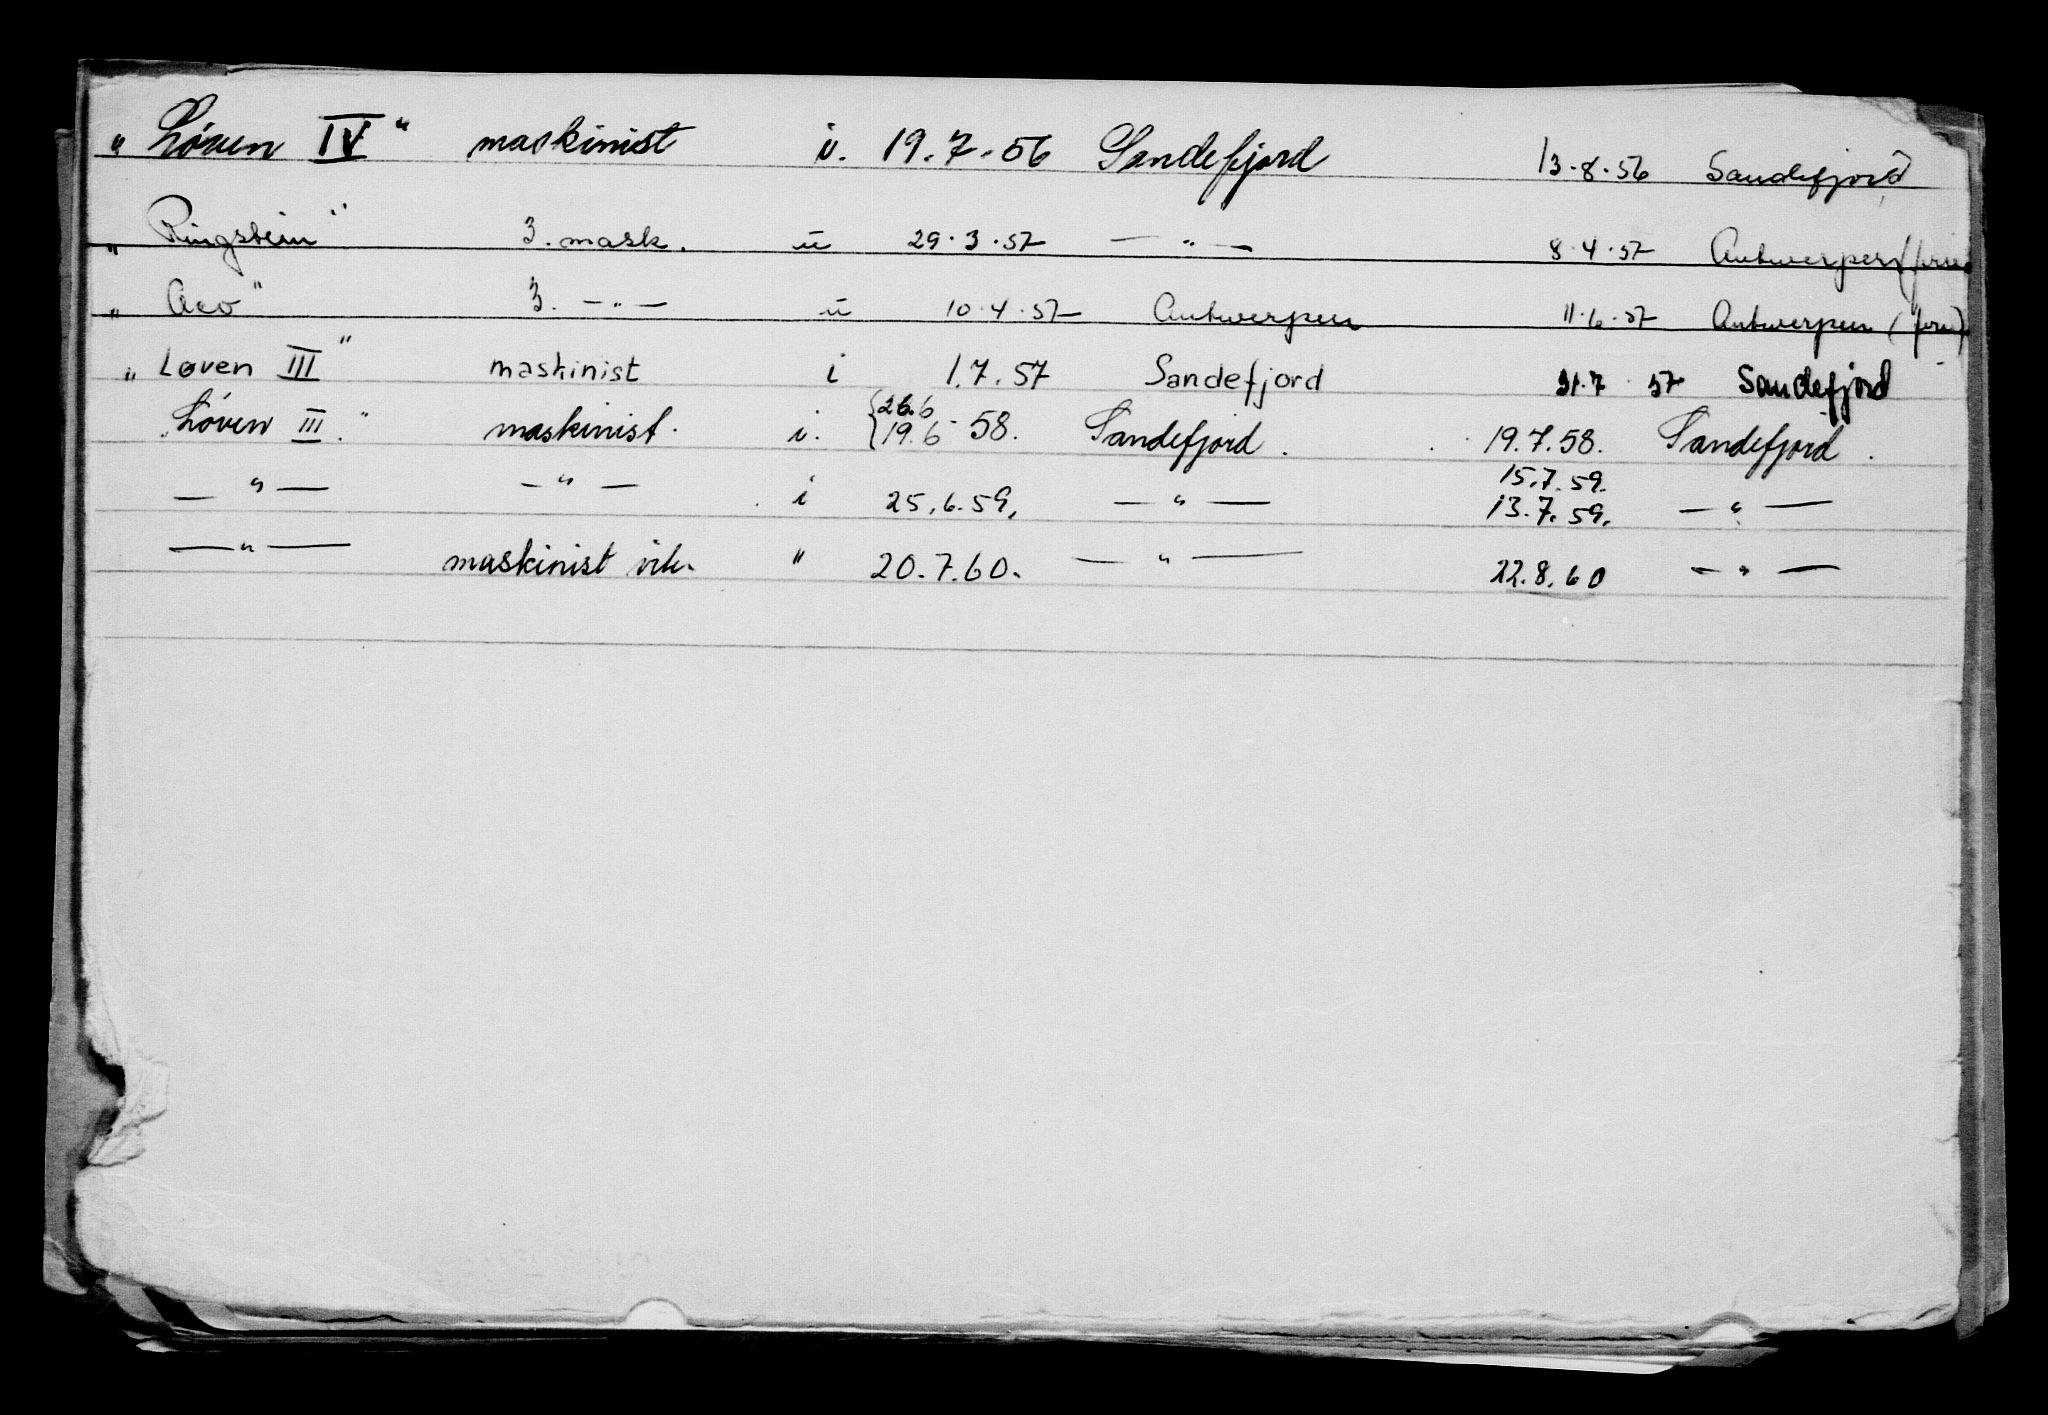 „ Løven IV“ maskinist i. 19.7.56 Sandefjord 13.8.56 Sandefjord
„ Ringstein“ 3. mask. u 29.3.57 — „ — 8.4.57 Antwerpen
„ Aco“ 3. — „ — u 10.4.57 Antwerpen 11.6.57 Antwerpen
„ Løven III“ maskinist i 1.7.57 Sandefjord 31.7.57 Sandefjord
26.6
„Løven III.“ maskinist. i. 19.6 58. Sandefjord. 19.7.58. Sandefjord.
15.7.59.
— „ — — „ — i 25.6.59. — „ — 13.7.59. — „ —
— „ — maskinist " 20.7.60. — „ — 22.8.60 — „ —